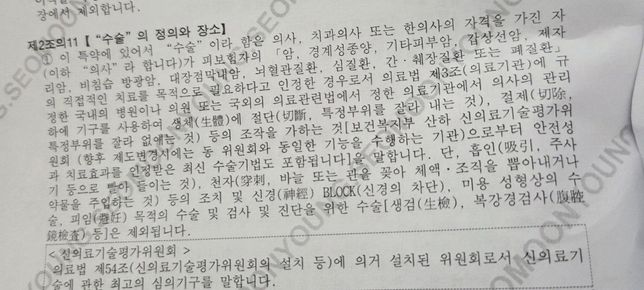 장에서 제외합니다.
제2조의11【 "수술"의 정의와 장소】
① 이 특약에 있어서 "수술"이라 함은 의사, 치과의사 또는 한의사의 자격을 가진 자
(이하 "의사"라 합니다)가 피보험자의 「암, 경계성종양, 기타피부암, 갑상선암, 제자
리암, 비침습 방광암, 대장점막내암, 뇌혈관질환, 심질환, 간·췌장질환 또는 폐질환」
의 직접적인 치료를 목적으로 필요하다고 인정한 경우로서 의료법 제3조(의료기관)에 규
정한 국내의 병원이나 의원 또는 국외의 의료관련법에서 정한 의료기관에서 의사의 관리
하에 기구를 사용하여 생체(生體)에 절단(切斷, 특정부위를 잘라 내는 것), 절제(切除,
특정부위를 잘라 없애는 것) 등의 조작을 가하는 것[보건복지부 산하 신의료기술평가위
원회 (향후 제도변경시에는 동 위원회와 동일한 기능을 수행하는 기관)으로부터 안전성
과 치료효과를 인정받은 최신 수술기법도 포함됩니다]을 말합니다. 단, 흡인(吸引, 주사
기 등으로 빨아 들이는 것), 천자(穿刺, 바늘 또는 관을 꽂아 체액·조직을 뽑아내거나
약물을 주입하는 것) 등의 조치 및 신경(神經) BLOCK(신경의 차단), 미용 성형상의 수
술, 피임(避妊) 목적의 수술 및 검사 및 진단을 위한 수술[생검(生檢), 복강경검사(腹腔
鏡檢査) 등]은 제외됩니다.
< 신의료기술평가위원회 >
의료법 제54조(신의료기술평가위원회의 설치 등)에 의거 설치된 위원회로서 신의료기
술에 관한 최고의 심의기구를 말합니다.